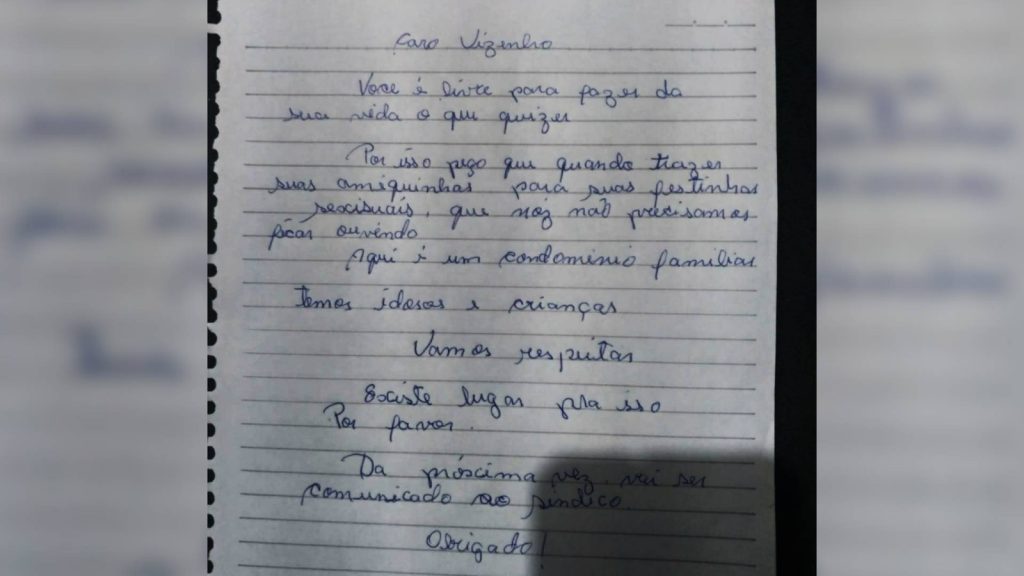 Caro Vizenho
Voce é livre para fazer da
sua vida o que quizer
Por isso peço que quando trazer
suas amiguinhas para suas festinhas
sexisuais, que nóz não precisamos
ficar ouvindo
Aqui é um condominio familiar
temos idosos e crianças
Vamos respeitar
Existe lugar pra isso
Por favor.
Da próscima vez vai ser
comunicado ao sindico.
Obrigado!